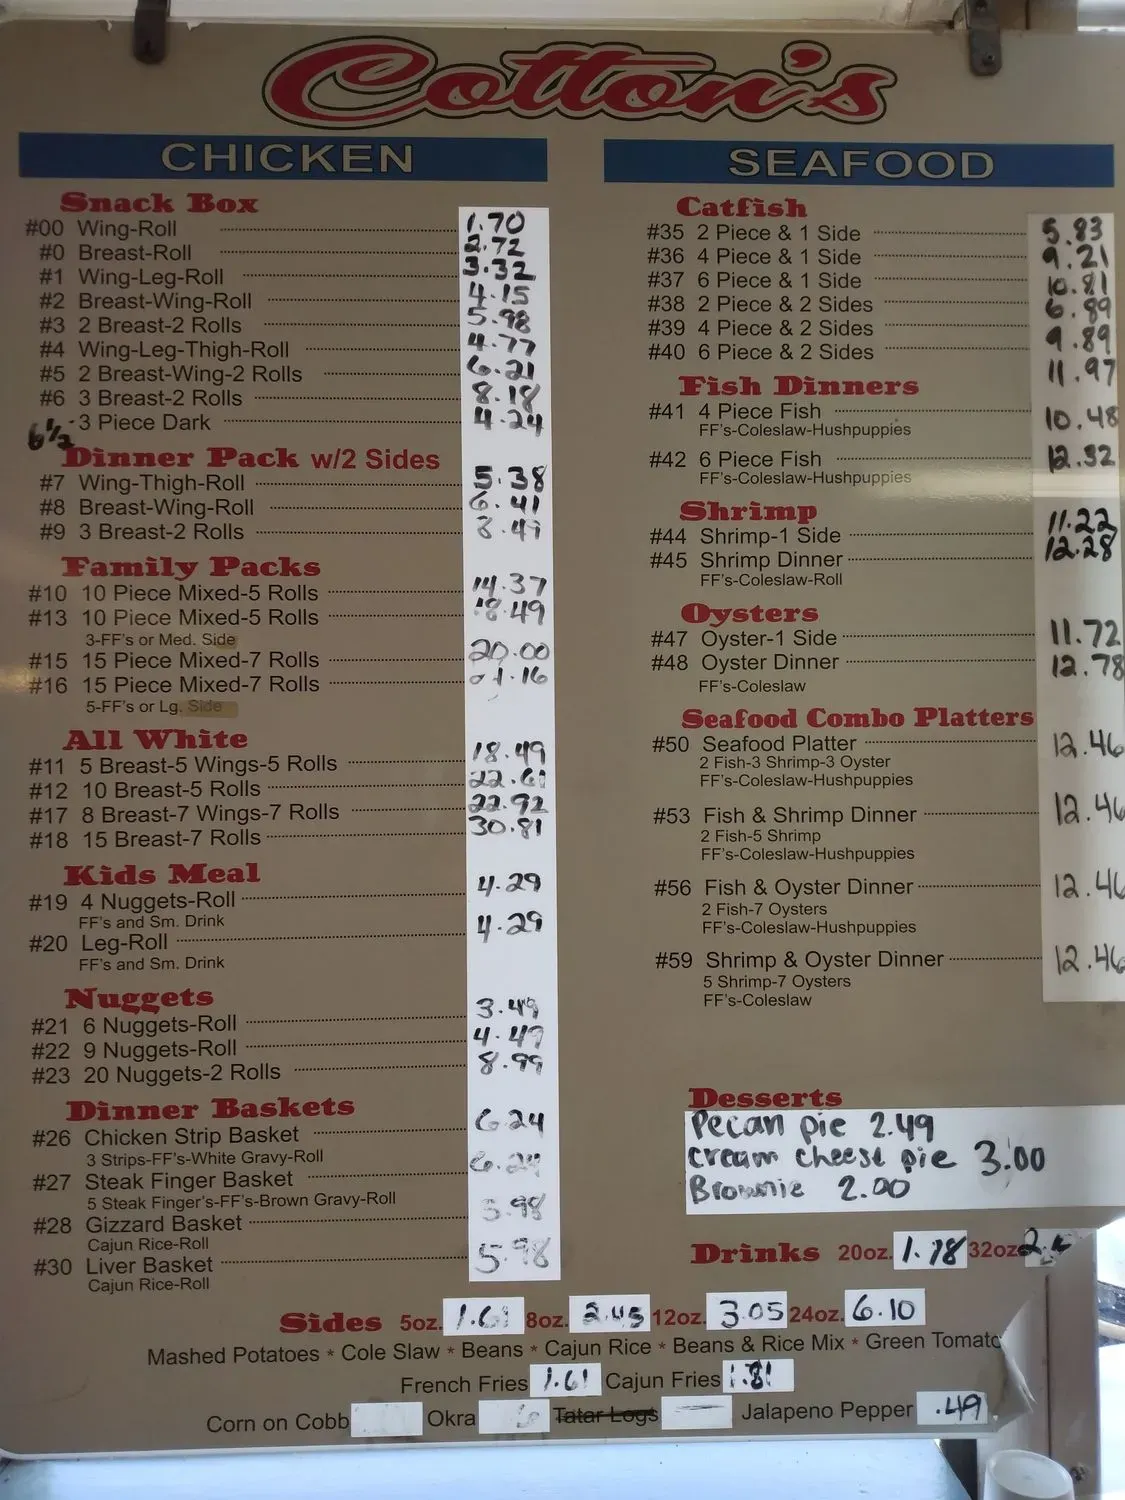 Cotton's
CHICKEN
Snack Box
#00 Wing-Roll 1.70
#0 Breast-Roll 2.72
#1 Wing-Leg-Roll 3.32
#2 Breast-Wing-Roll 4.15
#3 2 Breast-2 Rolls 5.98
#4 Wing-Leg-Thigh-Roll 4.77
#5 2 Breast-Wing-2 Rolls 6.21
#6 3 Breast-2 Rolls 8.18
6½ -3 Piece Dark 4.24
Dinner Pack w/2 Sides
#7 Wing-Thigh-Roll 5.38
#8 Breast-Wing-Roll 6.41
#9 3 Breast-2 Rolls 8.49
Family Packs
#10 10 Piece Mixed-5 Rolls 14.37
#13 10 Piece Mixed-5 Rolls 18.49
3-FF's or Med. Side
#15 15 Piece Mixed-7 Rolls 20.00
#16 15 Piece Mixed-7 Rolls
5-FF's or Lg. Side
All White
#11 5 Breast-5 Wings-5 Rolls 18.49
#12 10 Breast-5 Rolls 22.61
#17 8 Breast-7 Wings-7 Rolls 22.92
#18 15 Breast-7 Rolls 30.81
Kids Meal
#19 4 Nuggets-Roll 4.29
FF's and Sm. Drink
#20 Leg-Roll 4.29
FF's and Sm. Drink
Nuggets
#21 6 Nuggets-Roll 3.49
#22 9 Nuggets-Roll 4.49
#23 20 Nuggets-2 Rolls 8.99
Dinner Baskets
#26 Chicken Strip Basket 6.24
3 Strips-FF's-White Gravy-Roll
#27 Steak Finger Basket 6.24
5 Steak Finger's-FF's-Brown Gravy-Roll
#28 Gizzard Basket 5.98
Cajun Rice-Roll
#30 Liver Basket 5.98
Cajun Rice-Roll
SEAFOOD
Catfish
#35 2 Piece & 1 Side 5.83
#36 4 Piece & 1 Side 9.21
#37 6 Piece & 1 Side 10.81
#38 2 Piece & 2 Sides 6.89
#39 4 Piece & 2 Sides 9.89
#40 6 Piece & 2 Sides 11.97
Fish Dinners
#41 4 Piece Fish 10.48
FF's-Coleslaw-Hushpuppies
#42 6 Piece Fish 12.32
FF's-Coleslaw-Hushpuppies
Shrimp
#44 Shrimp-1 Side 11.22
#45 Shrimp Dinner 12.28
FF's-Coleslaw-Roll
Oysters
#47 Oyster-1 Side 11.72
#48 Oyster Dinner 12.78
FF's-Coleslaw
Seafood Combo Platters
#50 Seafood Platter 12.46
2 Fish-3 Shrimp-3 Oyster
FF's-Coleslaw-Hushpuppies
#53 Fish & Shrimp Dinner 12.46
2 Fish-5 Shrimp
FF's-Coleslaw-Hushpuppies
#56 Fish & Oyster Dinner 12.46
2 Fish-7 Oysters
FF's-Coleslaw-Hushpuppies
#59 Shrimp & Oyster Dinner 12.46
5 Shrimp-7 Oysters
FF's-Coleslaw
Desserts
Pecan pie 2.49
cream cheese pie 3.00
Brownie 2.00
Drinks 20oz. 1.78 32oz.
Sides 5oz. 1.61 8oz. 2.45 12oz. 3.05 24oz. 6.10
Mashed Potatoes * Cole Slaw * Beans * Cajun Rice * Beans & Rice Mix * Green Tomato
French Fries 1.61 Cajun Fries 1.81
Corn on Cobb Okra Tatar Logs Jalapeno Pepper .49